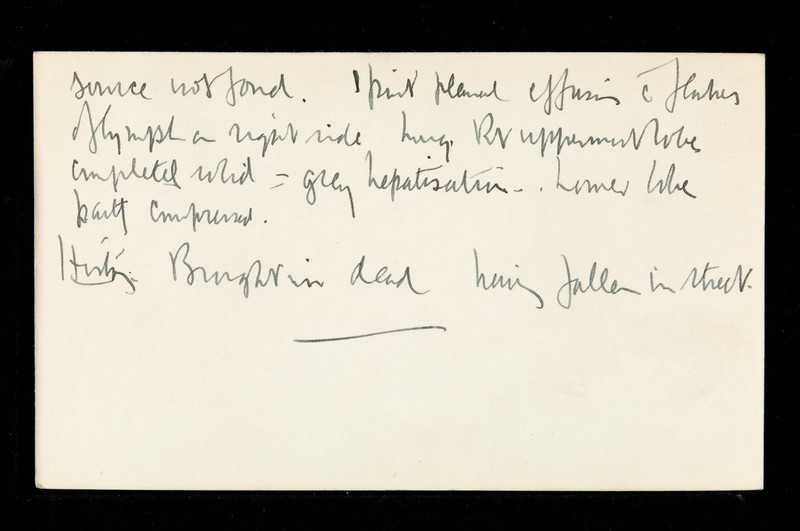 source not found. 1 pint pleural effusion c̄ flakes
of lymph on right side lung. Rt uppermost lobe
completely solid = grey hepatisation. Lower lobe
partly compressed.
History. Brought in dead having fallen in street.